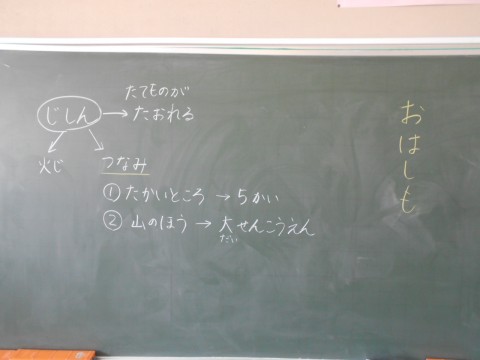 たてものが
じしん → たおれる
火じ つなみ
① たかいところ → 5かい
② 山のほう → 大せんこうえん
だい
おはしも